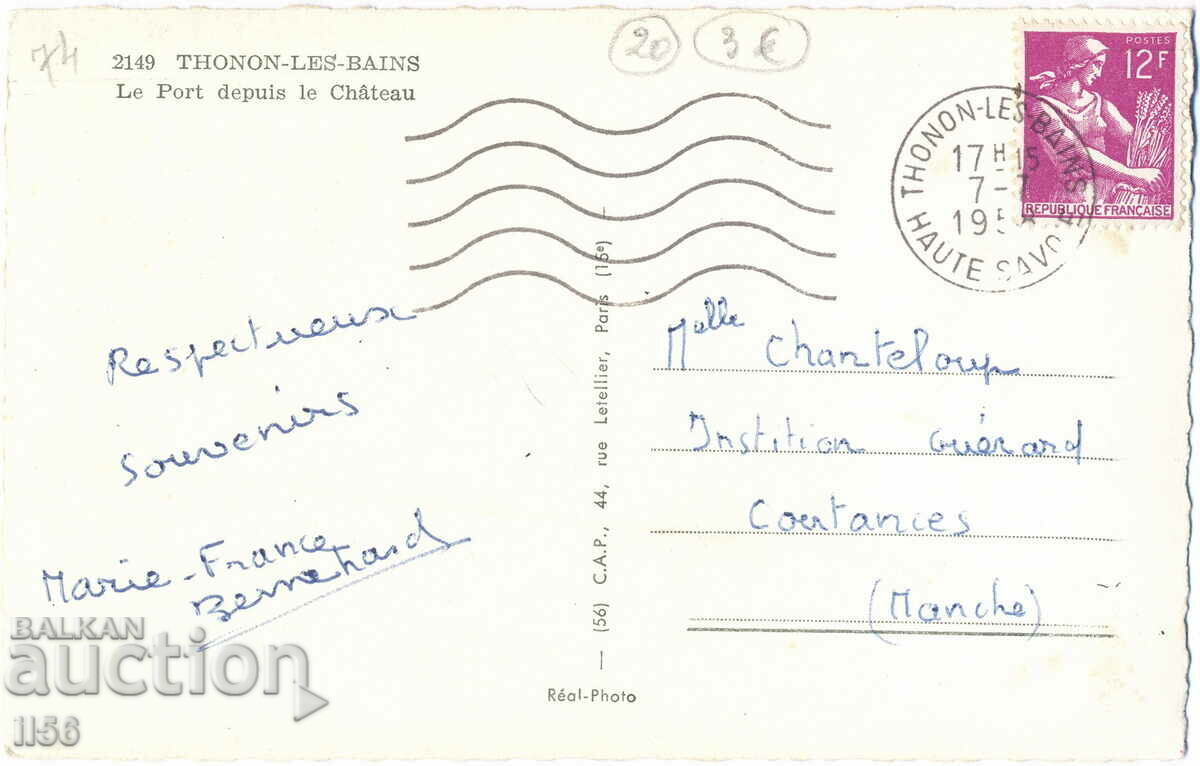 74
2149 THONON-LES-BAINS
Le Port depuis le Château
20
3 €
POSTES
12F
REPUBLIQUE FRANÇAISE
THONON-LES-BAINS
17H15
7-7
195
HAUTE SAVOIE
Respectueux
souvenirs
Marie-France
Bernehard
(56) C.A.P., 44, rue Letellier, Paris (15e)
Réal-Photo
Melle Chanteloup
Instition Guérard
Coutances
(Manche)
BALKAN
auction
1156